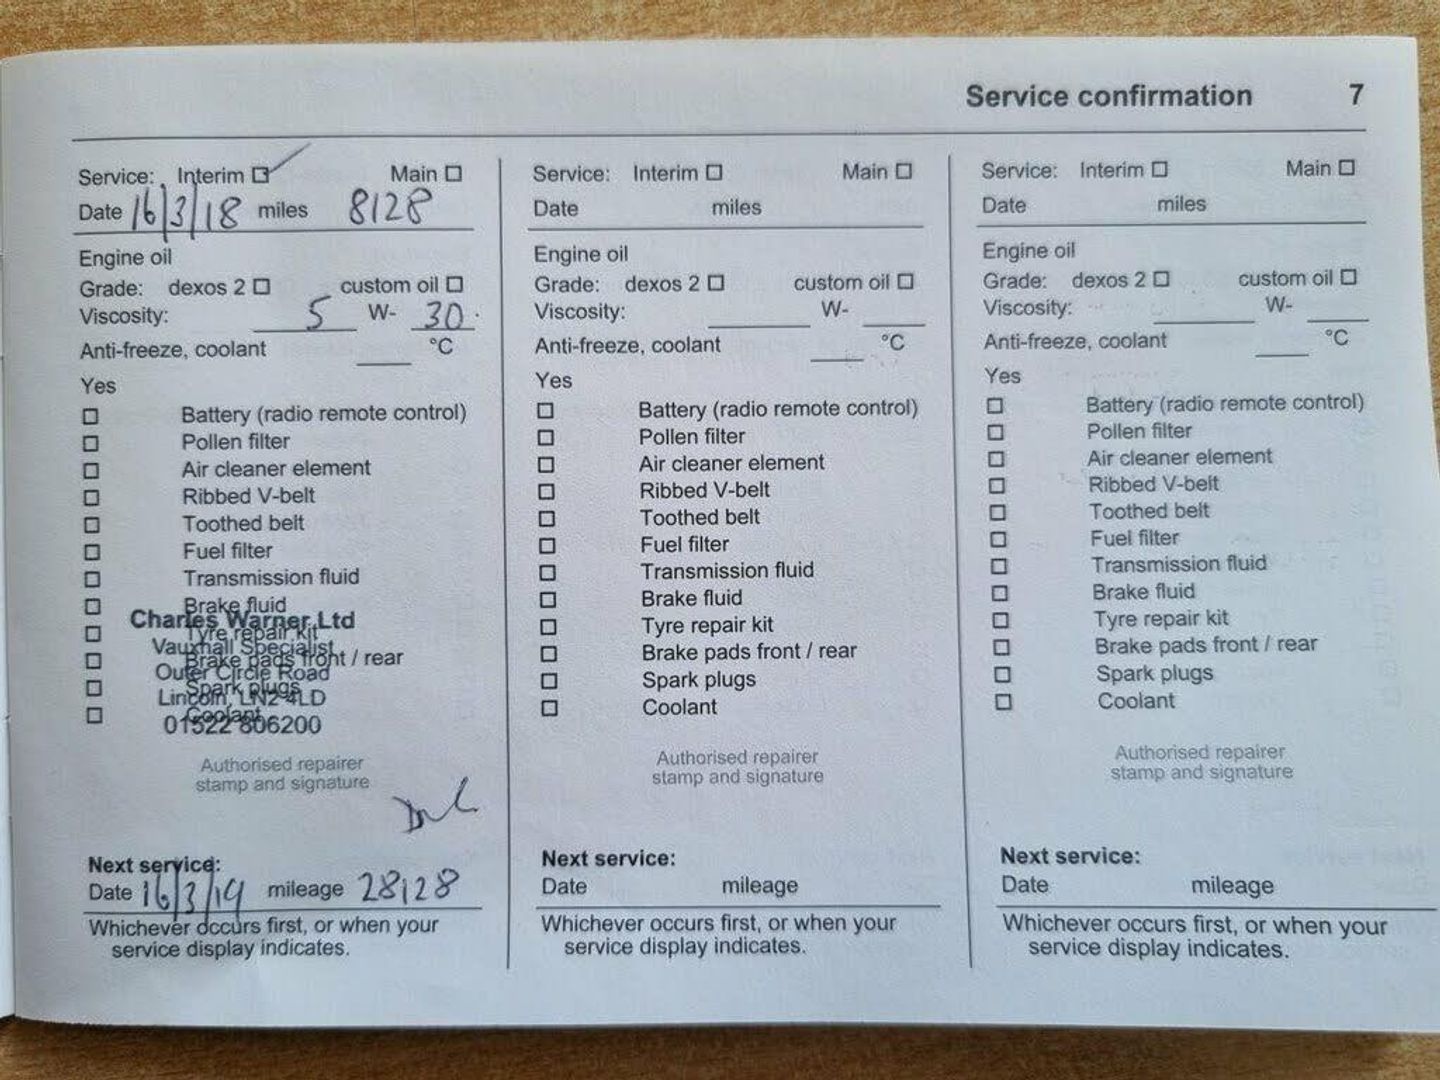 Service confirmation 7
Service: Interim ☑ Main ☐
Date 16/3/18 miles 8128
Engine oil
Grade: dexos 2 ☐ custom oil ☐
Viscosity: 5 W- 30
Anti-freeze, coolant ____ °C
Yes
☐ Battery (radio remote control)
☐ Pollen filter
☐ Air cleaner element
☐ Ribbed V-belt
☐ Toothed belt
☐ Fuel filter
☐ Transmission fluid
☐ Brake fluid
☐ Tyre repair kit
☐ Brake pads front / rear
☐ Spark plugs
☐ Coolant
Charles Warner Ltd
Vauxhall Specialist
Outer Circle Road
Lincoln, LN2 4LD
01522 806200
Authorised repairer
stamp and signature
Next service:
Date 16/3/19 mileage 28128
Whichever occurs first, or when your
service display indicates.
Service: Interim ☐ Main ☐
Date miles
Engine oil
Grade: dexos 2 ☐ custom oil ☐
Viscosity: ____ W- ____
Anti-freeze, coolant ____ °C
Yes
☐ Battery (radio remote control)
☐ Pollen filter
☐ Air cleaner element
☐ Ribbed V-belt
☐ Toothed belt
☐ Fuel filter
☐ Transmission fluid
☐ Brake fluid
☐ Tyre repair kit
☐ Brake pads front / rear
☐ Spark plugs
☐ Coolant
Authorised repairer
stamp and signature
Next service:
Date mileage
Whichever occurs first, or when your
service display indicates.
Service: Interim ☐ Main ☐
Date miles
Engine oil
Grade: dexos 2 ☐ custom oil ☐
Viscosity: ____ W- ____
Anti-freeze, coolant ____ °C
Yes
☐ Battery (radio remote control)
☐ Pollen filter
☐ Air cleaner element
☐ Ribbed V-belt
☐ Toothed belt
☐ Fuel filter
☐ Transmission fluid
☐ Brake fluid
☐ Tyre repair kit
☐ Brake pads front / rear
☐ Spark plugs
☐ Coolant
Authorised repairer
stamp and signature
Next service:
Date mileage
Whichever occurs first, or when your
service display indicates.